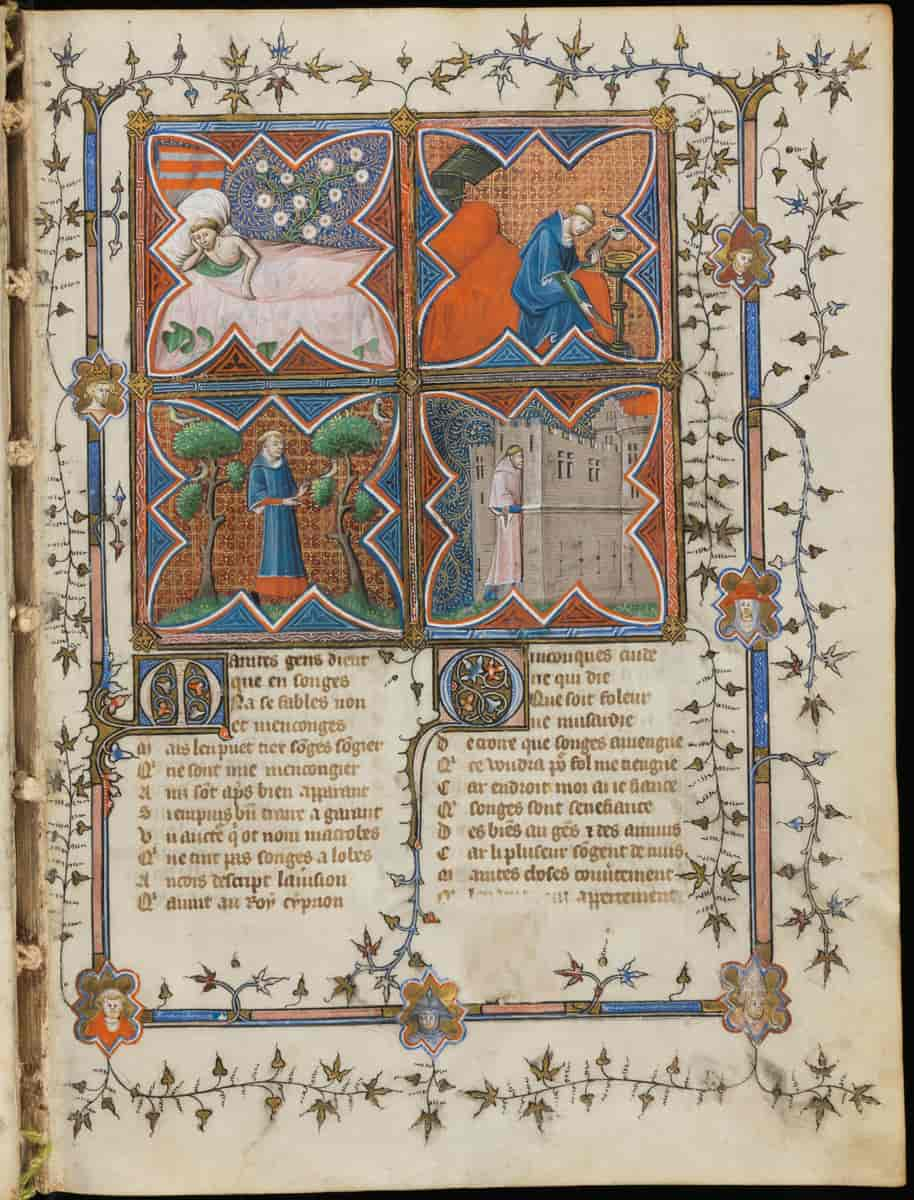 Maintes gens dient
que en songes
Na se fables non
et menconges
Mais len puet tiex sōges sōgier
Qͥ ne sont mie mencongier
Ainz sōt apͥs bien apparant
Si en puis bn̄ traire a garant
Un aucte qͥ ot nom macrobes
Qͥ ne tint pas songes a lobes
Ancois descript lauision
Qͥ auint au Roy cyprion
Quiconques cuide
ne qui die
Que soit foleur
ne musardie
De croire que songes auiengne
Qͥ ce voudra pᵒ fol me tiengne
Car endroit moi ai ie fiance
Qͥ songes sont senefiance
Des biēs au gēs ⁊ des anuius
Car li pluseur sōgent de nuis
Maintes choses couūtement
appertement